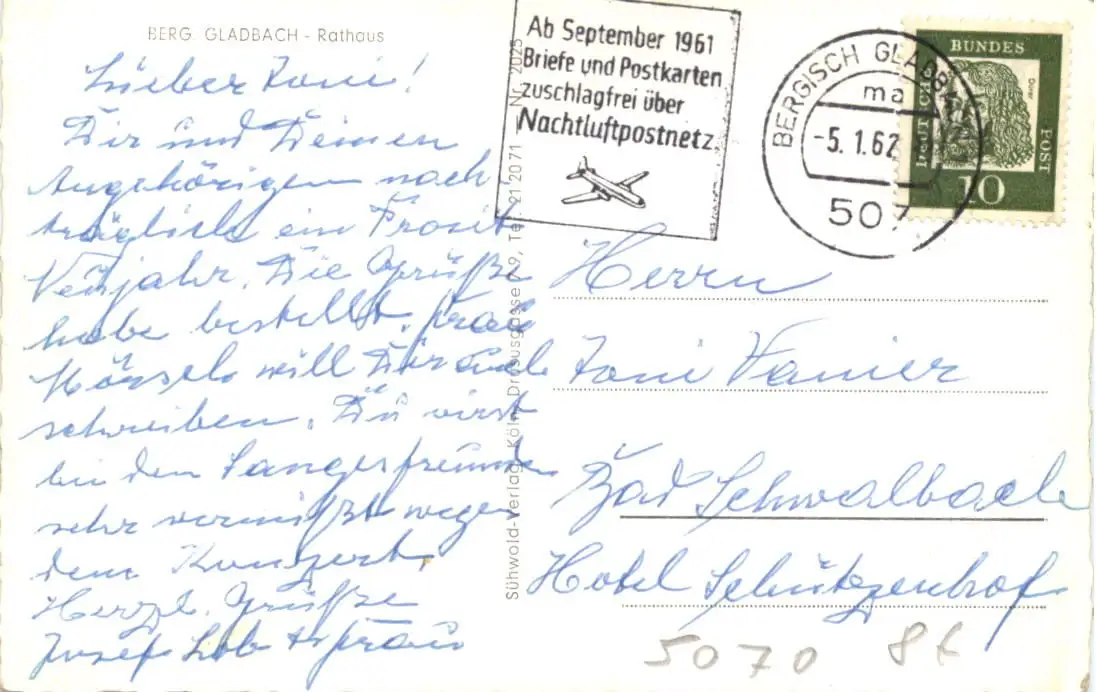 BERG. GLADBACH - Rathaus
Lieber Toni!
Dir und Deinen
Angehörigen nach
träglich ein Prosit
Neujahr. Die Grüße
habe bestellt. Frau
will Dir auch
schreiben. Du wirst
bei den Sangesfreunden
sehr vermißt wegen
dem Konzert.
Herzl. Grüße
Josef Lob u Frau
Sühwold-Verlag, Köln, Drususgasse 7-9, Tel. 21 20 71 Nr. 2025
Ab September 1961
Briefe und Postkarten
zuschlagfrei über
Nachtluftpostnetz
BERGISCH GLADBACH
-5.1.62
507
DEUTSCHE BUNDESPOST
Dürer
10
Herrn
Toni Vanier
Bad Schwalbach
Hotel Schützenhof
5070 86